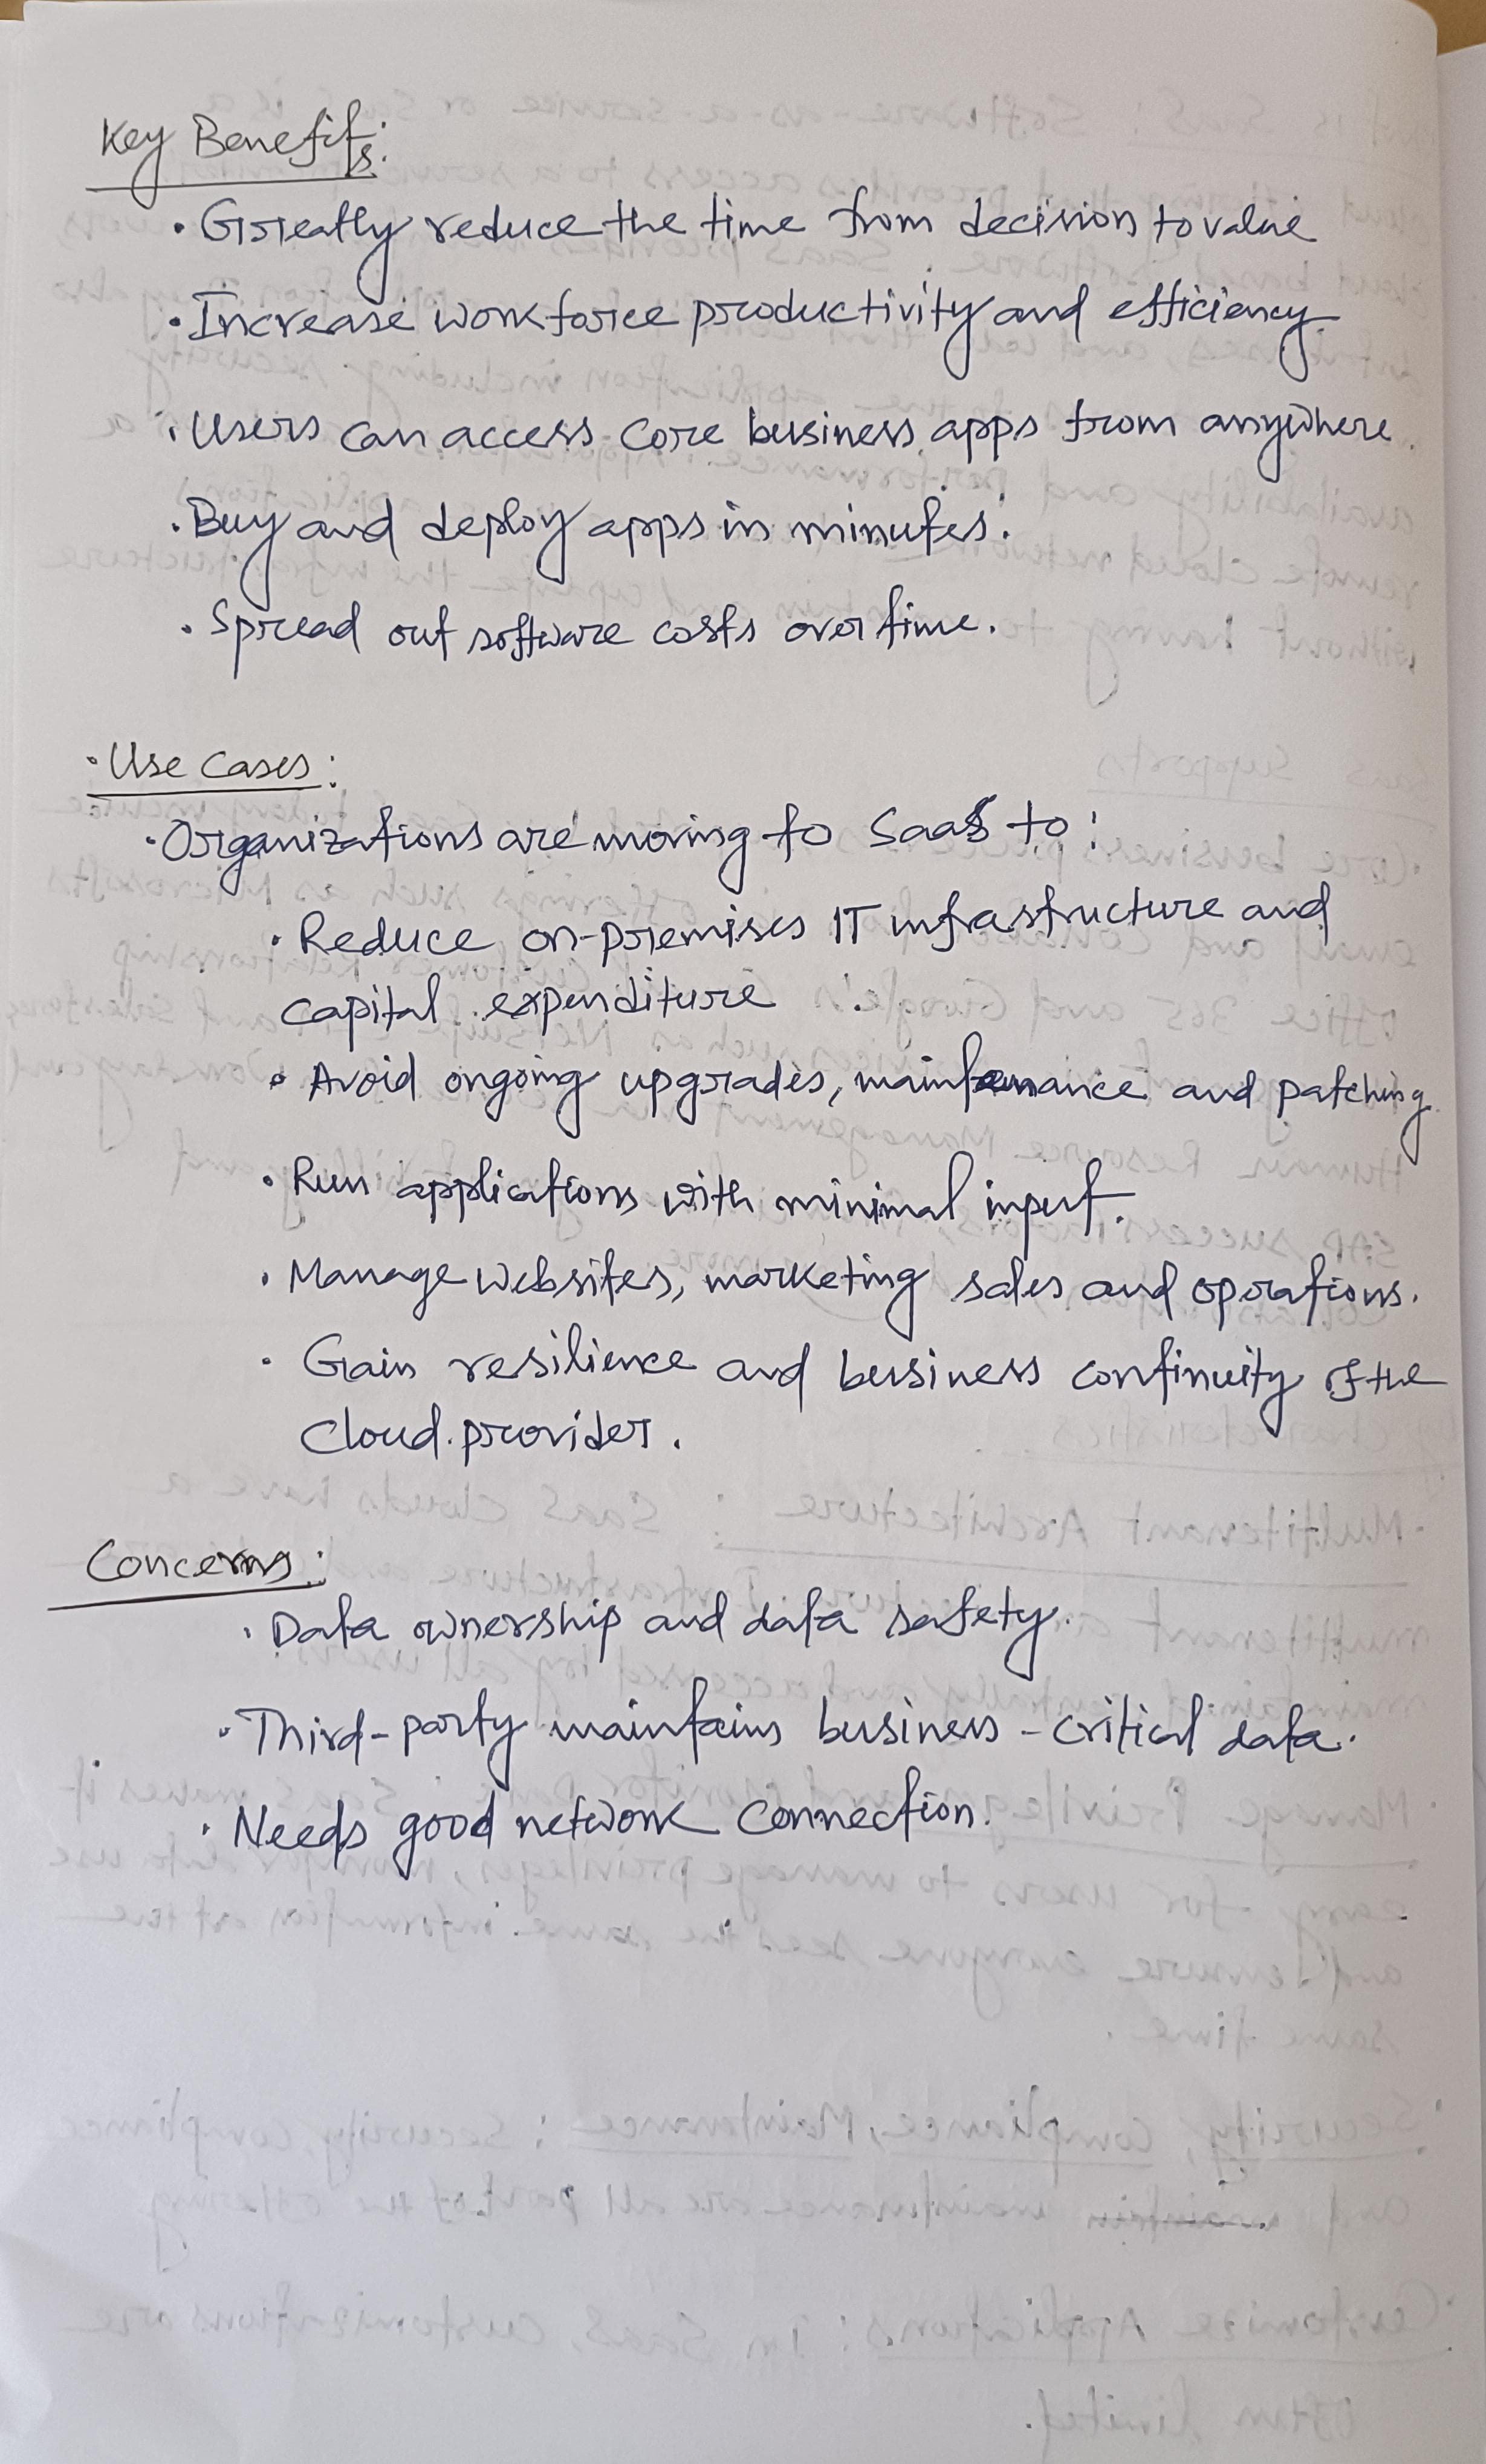 Key Benefits:
· Greatly reduce the time from decision to value
· Increase workforce productivity and efficiency
· Users can access core business apps from anywhere.
· Buy and deploy apps in minutes.
· Spread out software costs over time.
· Use Cases:
· Organizations are moving to SaaS to:
· Reduce on-premises IT infrastructure and
capital expenditure
· Avoid ongoing upgrades, maintenance and patching
· Run applications with minimal input.
· Manage websites, marketing sales and operations.
· Gain resilience and business continuity of the
Cloud provider.
Concerns:
· Data ownership and data safety.
· Third-party maintains business-critical data.
· Needs good network connection.